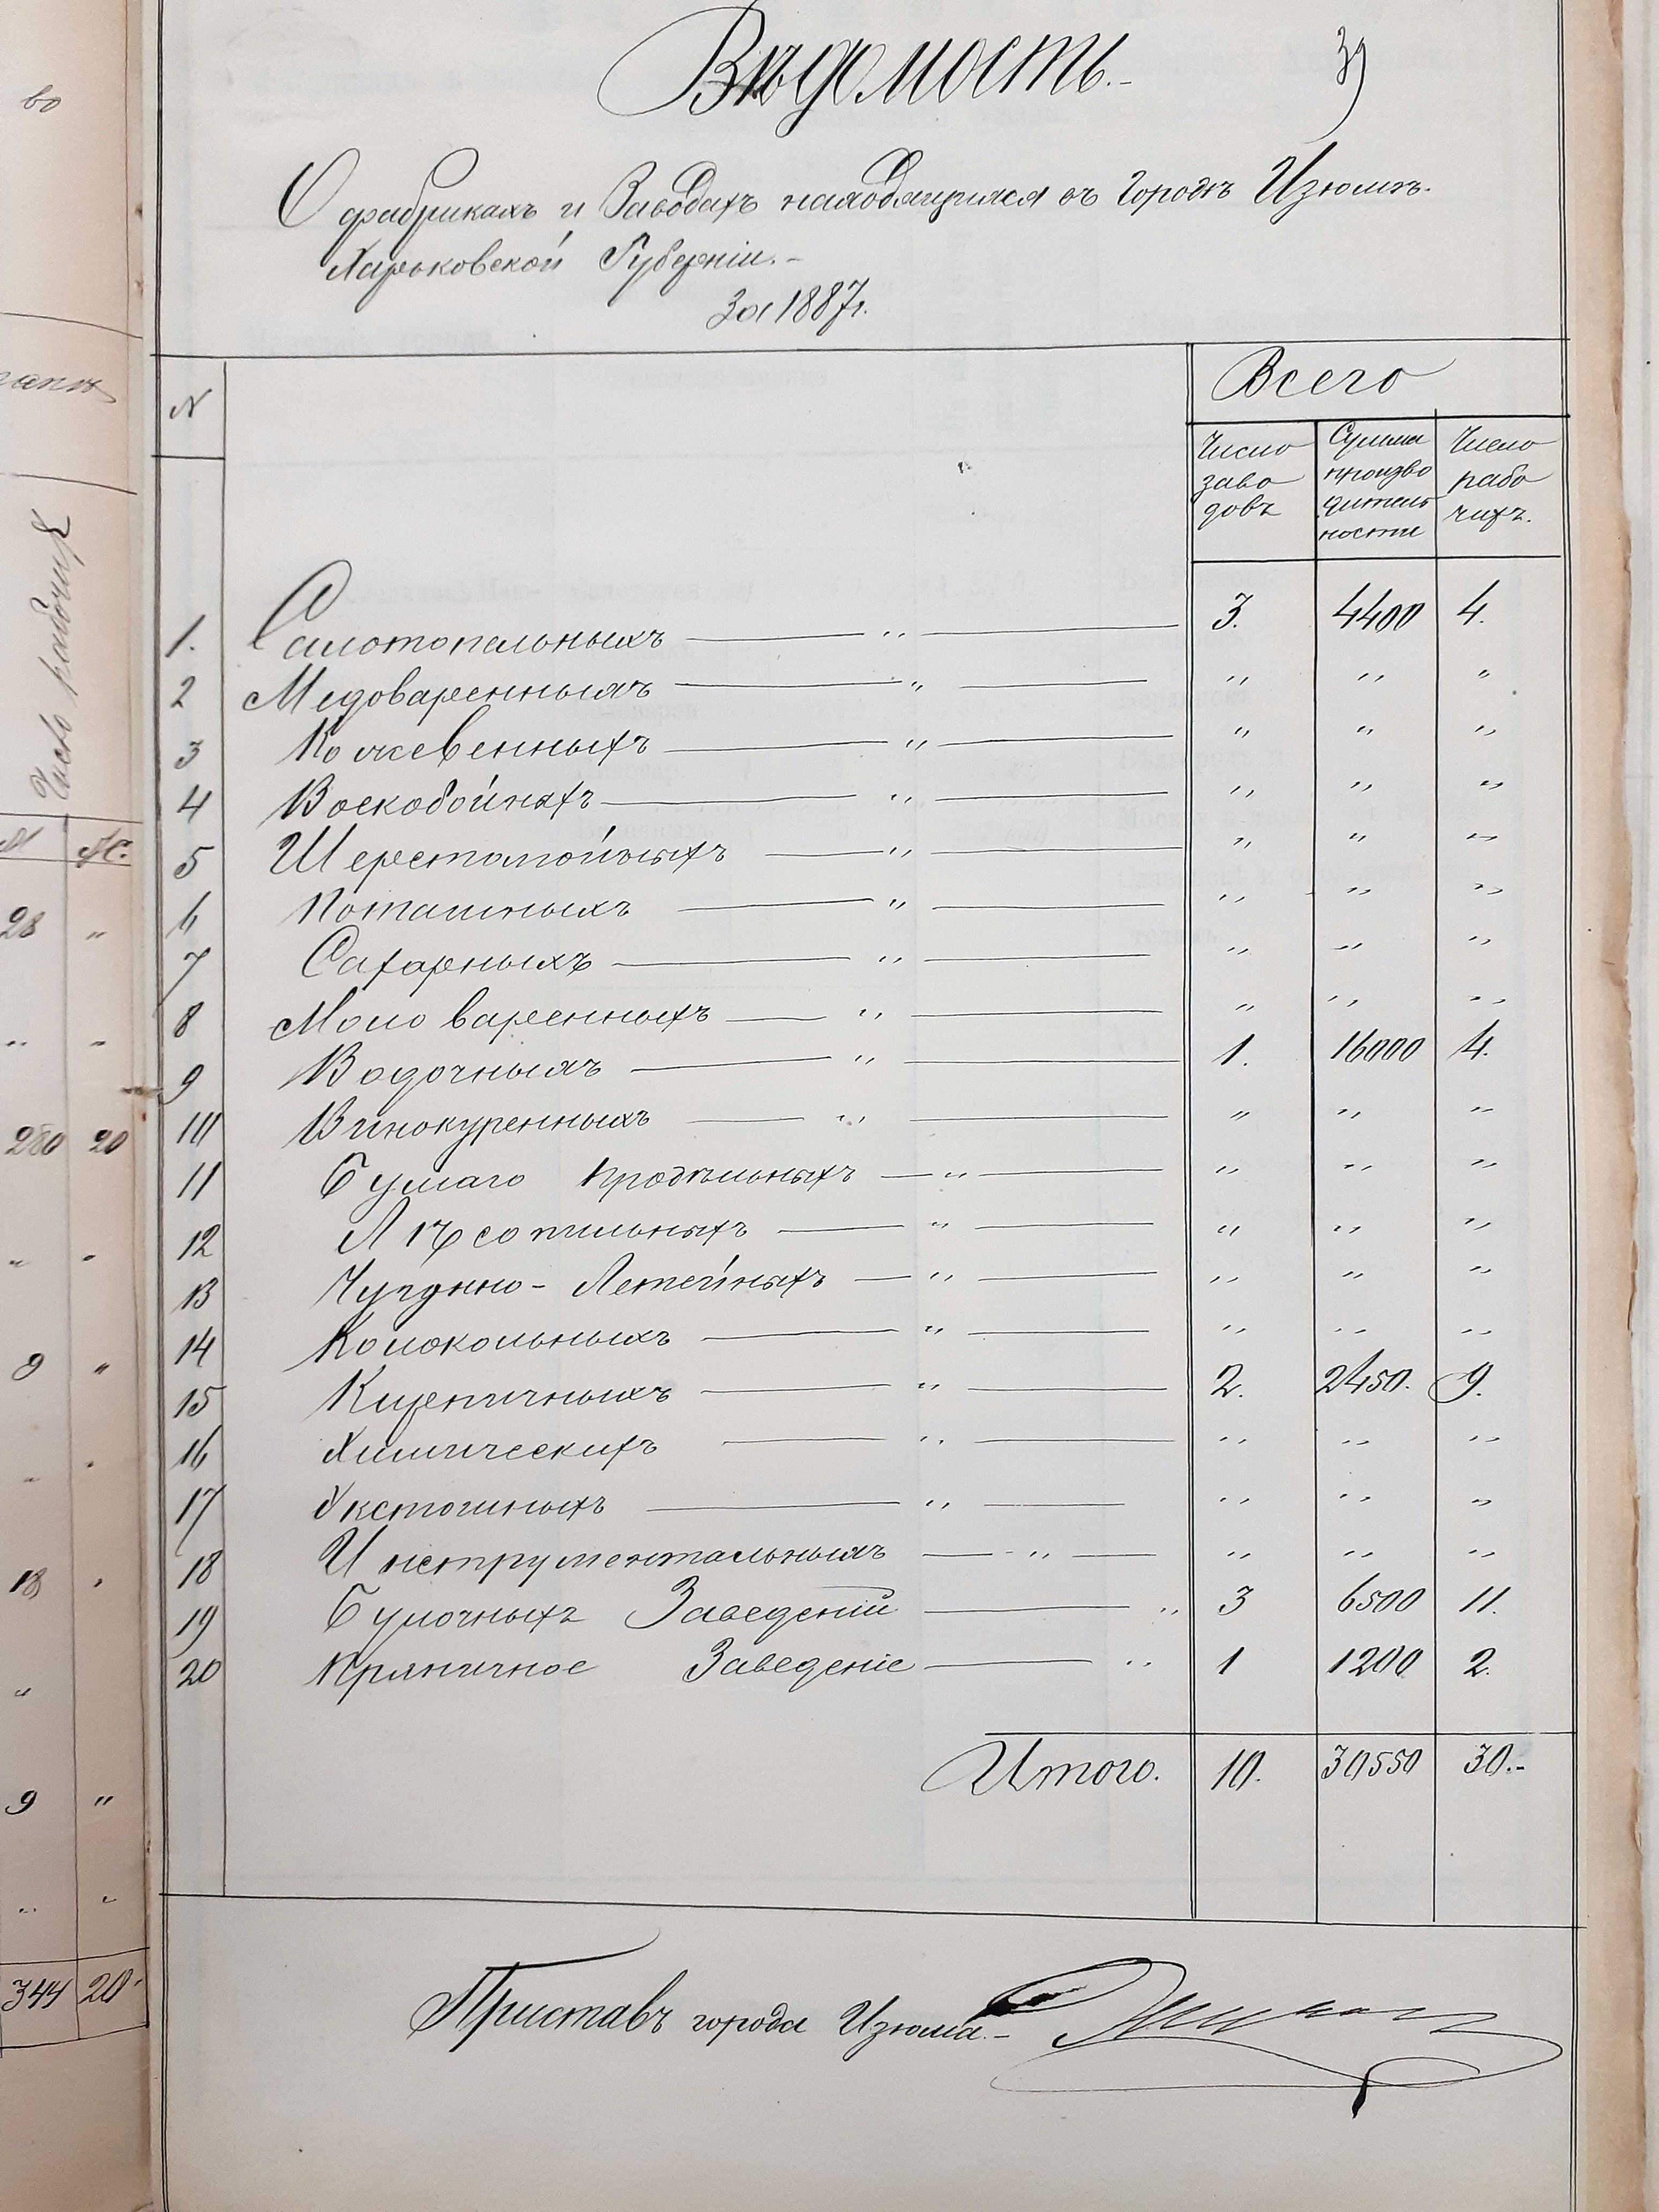 во
Вѣдомость.-
39
О фабрикахъ и Заводахъ находящихся въ Городѣ Изюмѣ.
Харьковской Губерніи.-
За 1887г.
N
Всего
Число заво довъ
Сумма произво дитель ности
Число рабо чихъ.
1. Салотопельныхъ — „ — 3. 4400 4.
2 Медоваренныхъ — „ — „ „ „
3 Кожевенныхъ — „ — „ „ „
4 Воскобойныхъ — „ — „ „ „
5 Шерстомойныхъ — „ — „ „ „
6 Поташныхъ — „ — „ „ „
7 Сахарныхъ — „ — „ „ „
8 Мыловаренныхъ — „ — „ „ „
9 Водочныхъ — „ — 1. 16000 4.
10 Винокуренныхъ — „ — „ „ „
11 Бумаго прядильныхъ — „ — „ „ „
12 Лѣсопильныхъ — „ — „ „ „
13 Чугунно-Летейныхъ — „ — „ „ „
14 Колокольныхъ — „ — „ „ „
15 Кирпичныхъ — „ — 2. 2450. 9.
16 Химическихъ — „ — „ „ „
17 — „ — „ „ „
18 Инструментальныхъ — „ — „ „ „
19 Булочныхъ Заведеній — „ 3 6500 11.
20 Пряничное Заведеніе — „ 1 1200 2.
Итого. 10. 30550 30.-
Приставъ города Изюма.-
Число рабочихъ
М Ж.
28 „
„ „
280 20
„ „
9 „
„ „
18 „
„
9 „
„ „
344 20